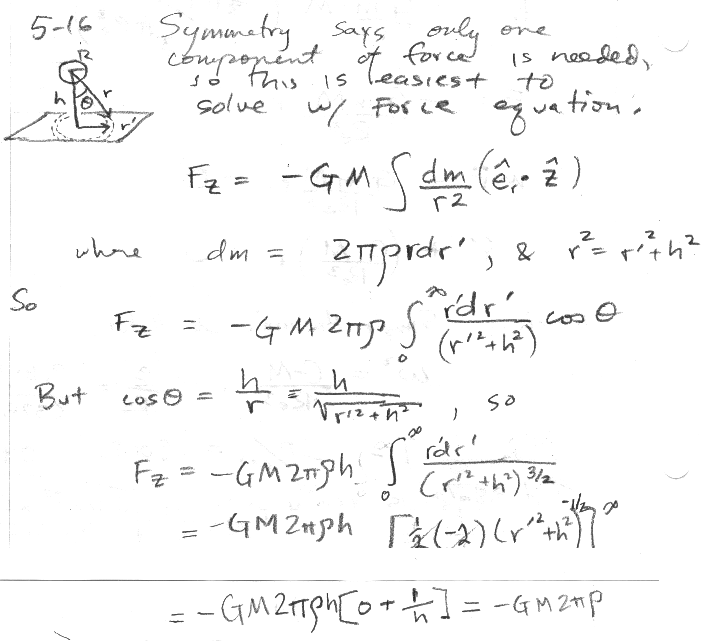 5-16 Symmetry says only one
component of force is needed,
so this is easiest to
solve w/ Force equation.
R
h θ r
r'
F_z = -GM ∫ dm/r2 (ê_r · ẑ)
where dm = 2πρrdr', & r² = r'² + h²
So
F_z = -GM 2πρ ∫₀^∞ r'dr'/(r'²+h²) cos θ
But cosθ = h/r = h/√(r'²+h²), so
F_z = -GM2πρh ∫₀^∞ r'dr'/(r'²+h²)^3/2
= -GM2πρh [½(-2)(r'²+h²)^-1/2]₀^∞
= -GM2πρh[0 + 1/h] = -GM2πρ